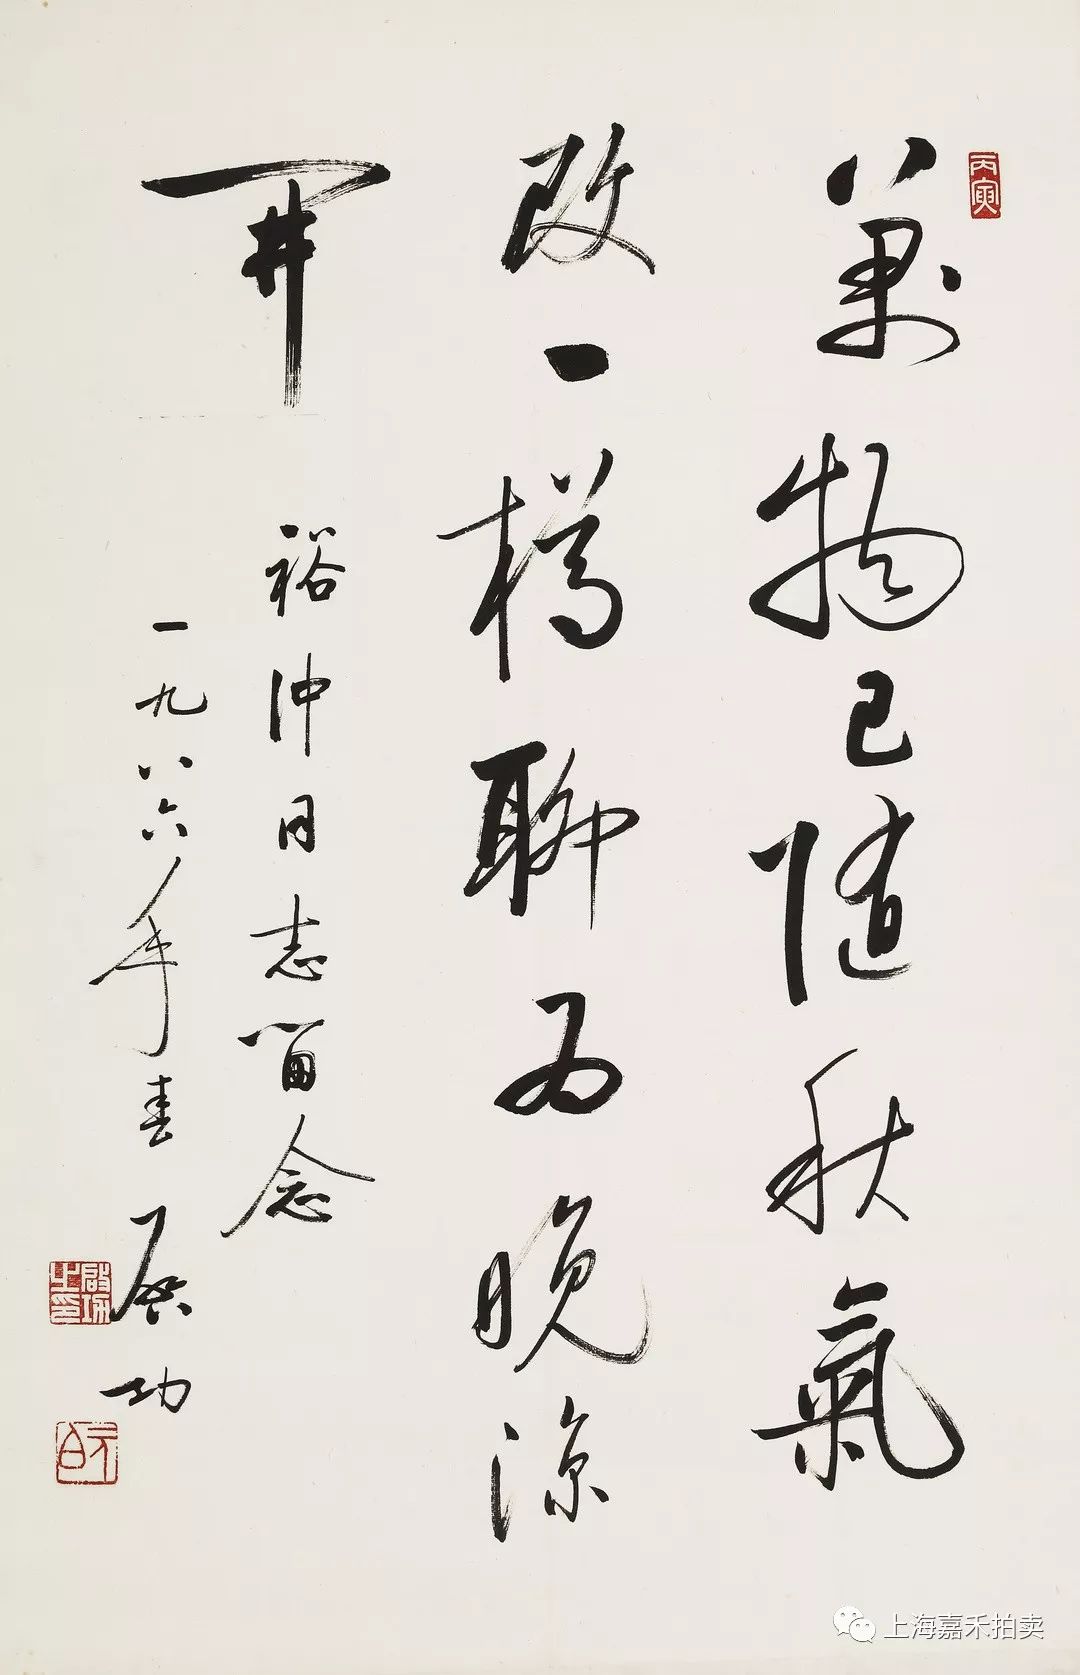 丙寅
萬物已隨秋氣
改一樽聊為晚涼
開
裕仲同志留念
一九八六年春
启功
啟功之印
元白
上海嘉禾拍卖